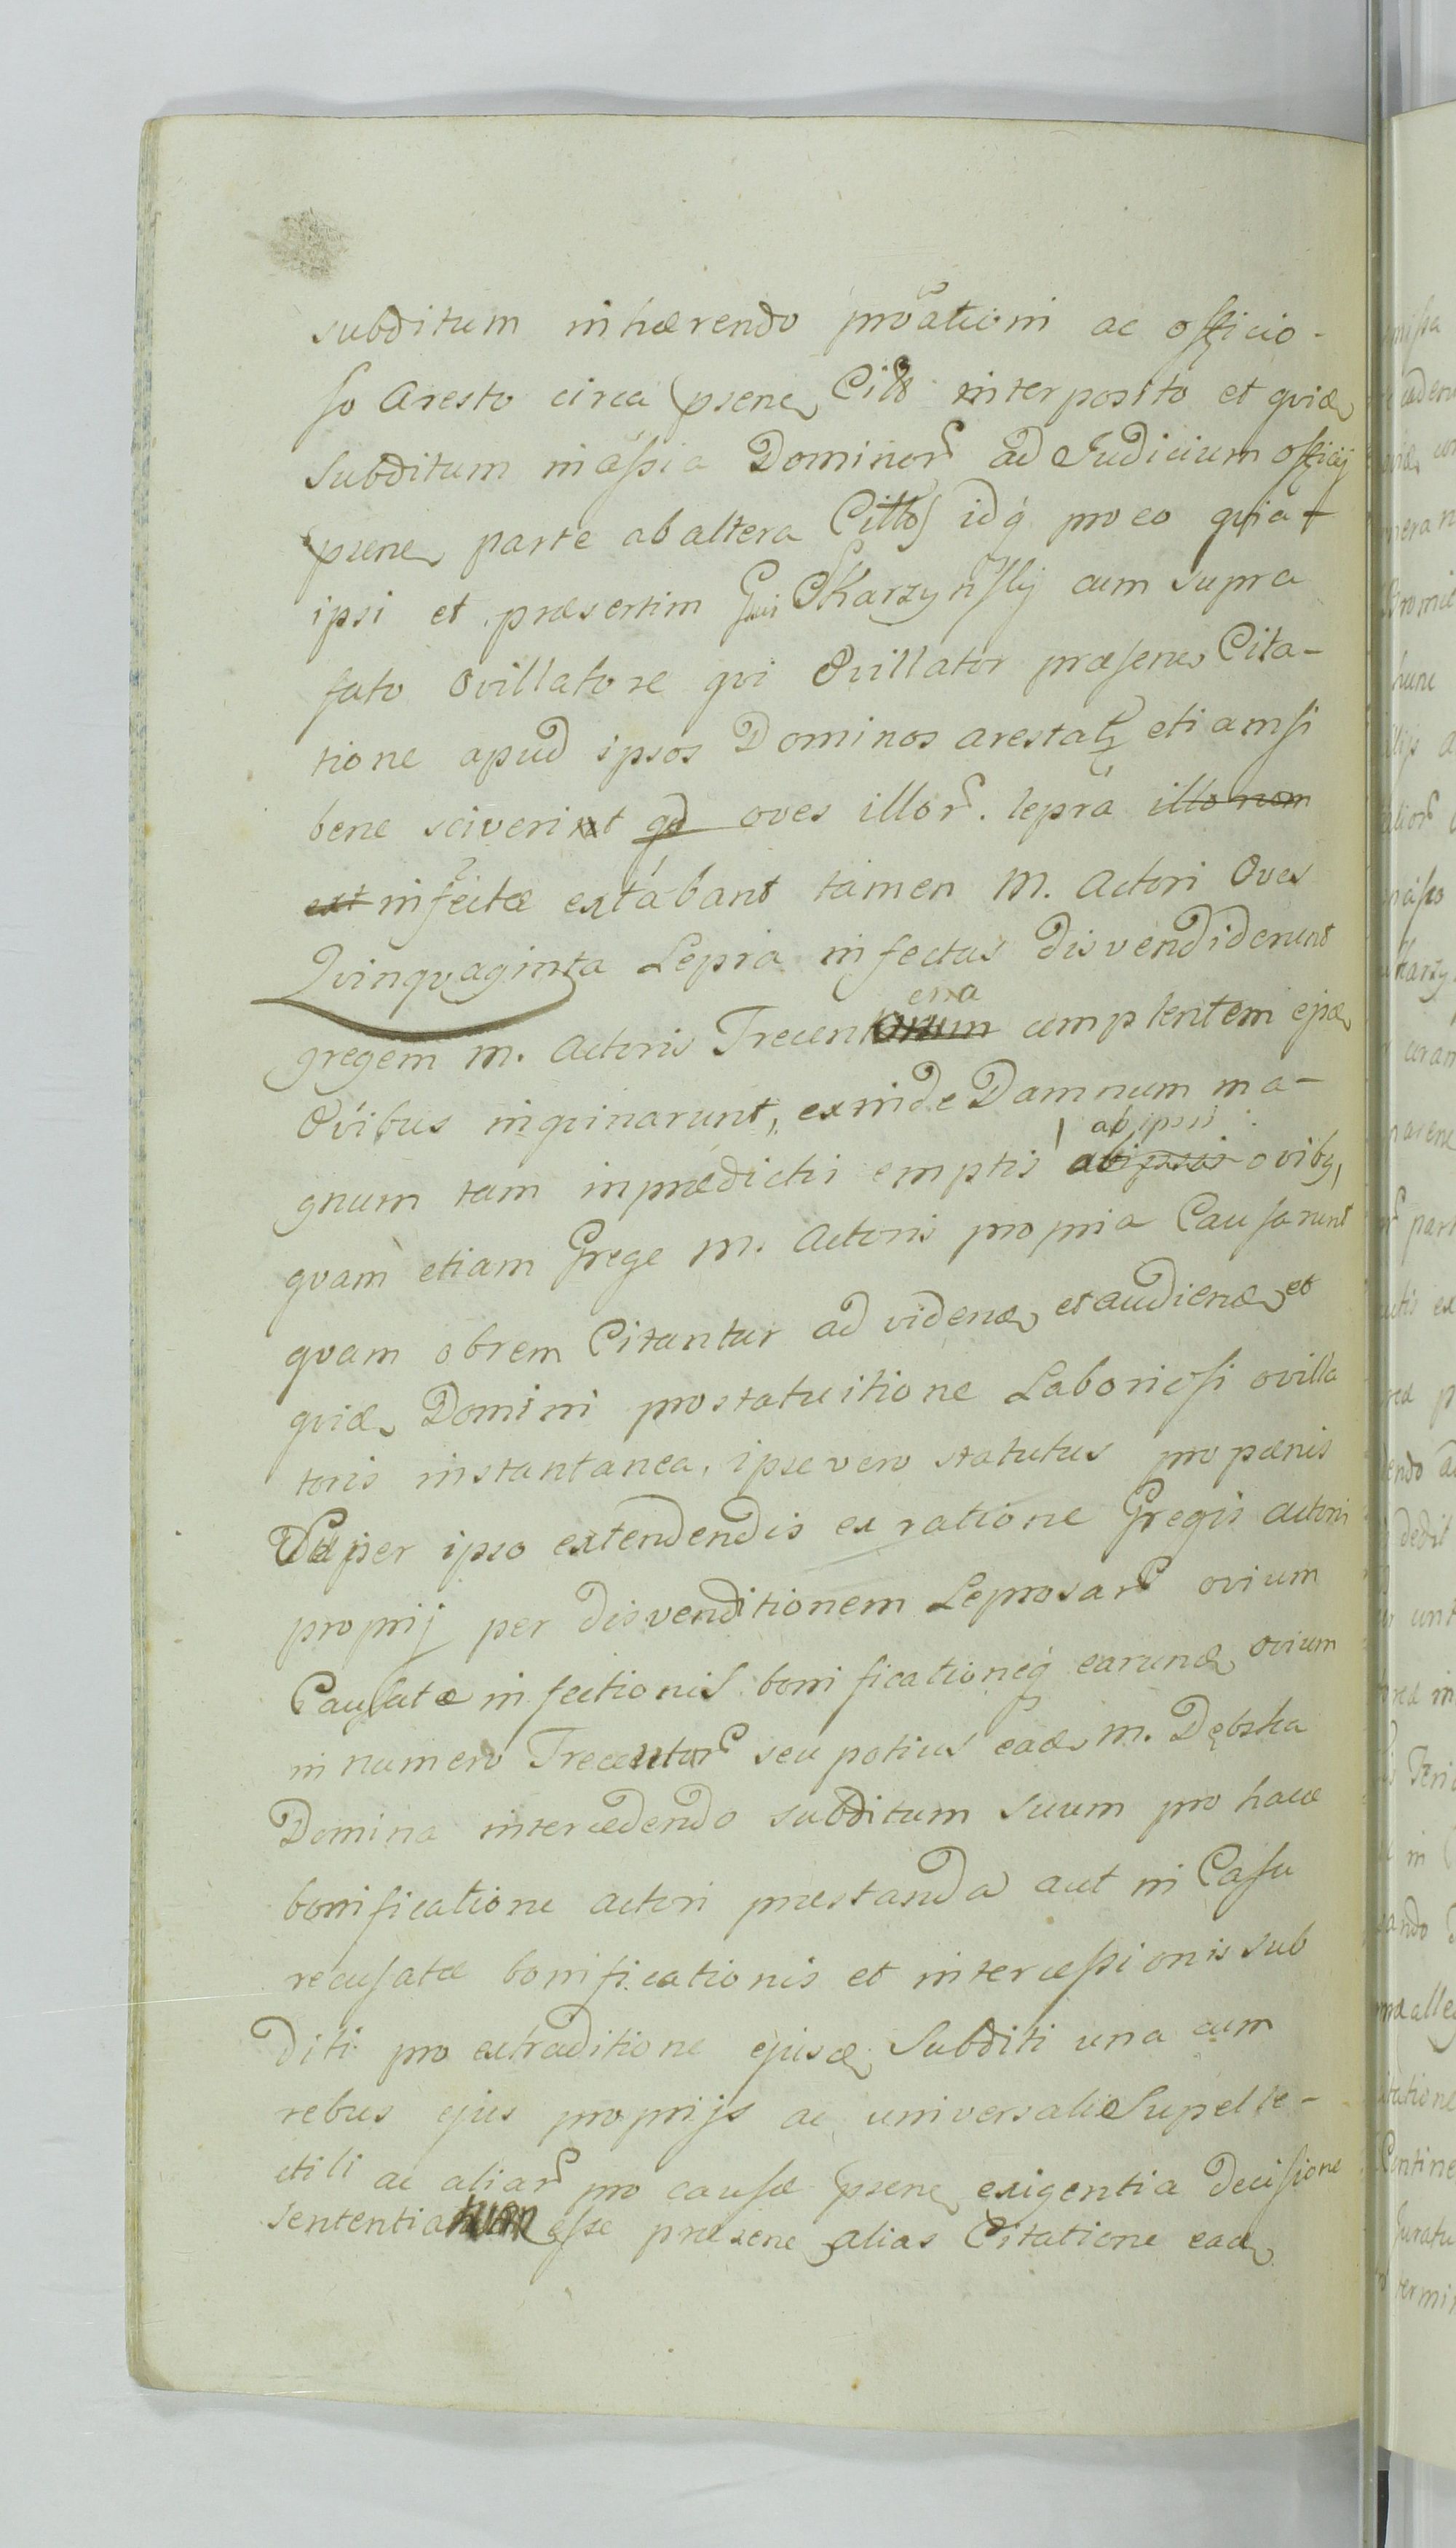 subditum inhærendo proãtioni ac officio-
so Aresto circa psene Citt interposito et qviæ
Subditum in aßia Dominor ad Judicium officij
psene parte ab altera Cittos idq pro eo qvia
ipsi et præsertim Gsus Skarzyńskij cum supra
fato Ovillatore qvi Ovillator præsene Cita-
tione apud ipsos Dominos arestat etiamsi
bene sciverint qd oves illor. lepra illo nom
ext infectæ extabant tamen M. Actori Oves
Qvinqvaginta Lepra infectas disvendiderunt
gregem M. Actoris Trecentena complentem ejsæ
Ovibus inqvinarunt, exinde Damnum ma-
gnum tam in prædictis emptis ab ipsis oviby,
qvam etiam Grege M. Actoris propria Causarunt
qvam obrem Citantur ad videnæ et audienæ et
qviæ Domini pro statuitione Laboriosi ovilla
toris instantanea, ipse vero statutus pro pænis
super ipso extendendis ex ratione Gregis actoris
proprij per disvenditionem Leprosar ovium
Causatæ infectionis bonificationeq earunæ ovium
in numero Trecentor seu potius eadæ M. Dębska
Domina intercedendo subditum suum pro hacæ
bonificatione actori præstanda aut in Casu
recusatæ bonificationis et interceßionis sub
diti pro extraditione ejusæ Subditi una cum
rebus ejus proprijs ac universali Supelle-
ctili ac aliar pro causæ psene exigentia decisione
sententiarum esse præsene alias Citatione eadæ